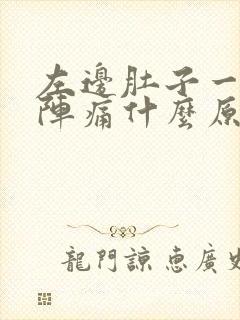 左邊肚子一
陣痛什麼原
龍門諒惠廣